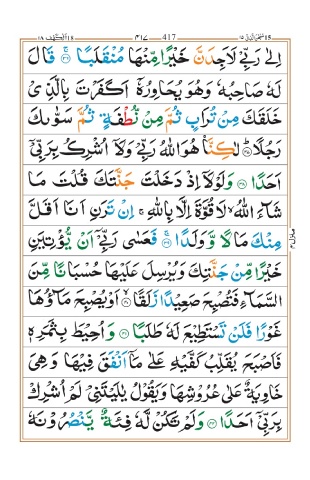 سبحن الذی ۱۵ 417 ۴۱۷ الکهف ۱۸
اِلٰى رَبِّىْ لَاَجِدَنَّ خَيْرًا مِّنْهَا مُنْقَلَبًا ۚ‏ ﴿۳۶﴾ قَالَ
لَهٗ صَاحِبُهٗ وَهُوَ يُحَاوِرُهٗۤ اَكَفَرْتَ بِالَّذِىْ
خَلَقَكَ مِنْ تُرَابٍ ثُمَّ مِنْ نُّطْفَةٍ ثُمَّ سَوّٰٮكَ
رَجُلًا ؕ‏ ﴿۳۷﴾ لّٰـكِنَّا۟ هُوَ اللّٰهُ رَبِّىْ وَلَاۤ اُشْرِكُ بِرَبِّىْۤ
اَحَدًا‏ ﴿۳۸﴾ وَلَوْلَاۤ اِذْ دَخَلْتَ جَنَّتَكَ قُلْتَ مَا
شَآءَ اللّٰهُ ۙ لَا قُوَّةَ اِلَّا بِاللّٰهِ‌ ۚ اِنْ تَرَنِ اَنَا اَقَلَّ
مِنْكَ مَالًا وَّوَلَدًا‌ ۚ‏ ﴿۳۹﴾ فَعَسٰى رَبِّىْۤ اَنْ يُّؤْتِيَنِ
خَيْرًا مِّنْ جَنَّتِكَ وَيُرْسِلَ عَلَيْهَا حُسْبَانًا مِّنَ
السَّمَآءِ فَتُصْبِحَ صَعِيْدًا زَلَـقًا ۙ‏ ﴿۴۰﴾ اَوْ يُصْبِحَ مَآؤُهَا
غَوْرًا فَلَنْ تَسْتَطِيْعَ لَهٗ طَلَبًا‏ ﴿۴۱﴾ وَاُحِيْطَ بِثَمَرِهٖ
فَاَصْبَحَ يُقَلِّبُ كَفَّيْهِ عَلٰى مَاۤ اَنْفَقَ فِيْهَا وَهِىَ
خَاوِيَةٌ عَلٰى عُرُوْشِهَا وَيَقُوْلُ يٰلَيْتَنِىْ لَمْ اُشْرِكْ
بِرَبِّىْۤ اَحَدًا‏ ﴿۴۲﴾ وَلَمْ تَكُنْ لَّهٗ فِئَةٌ يَّنْصُرُوْنَهٗ